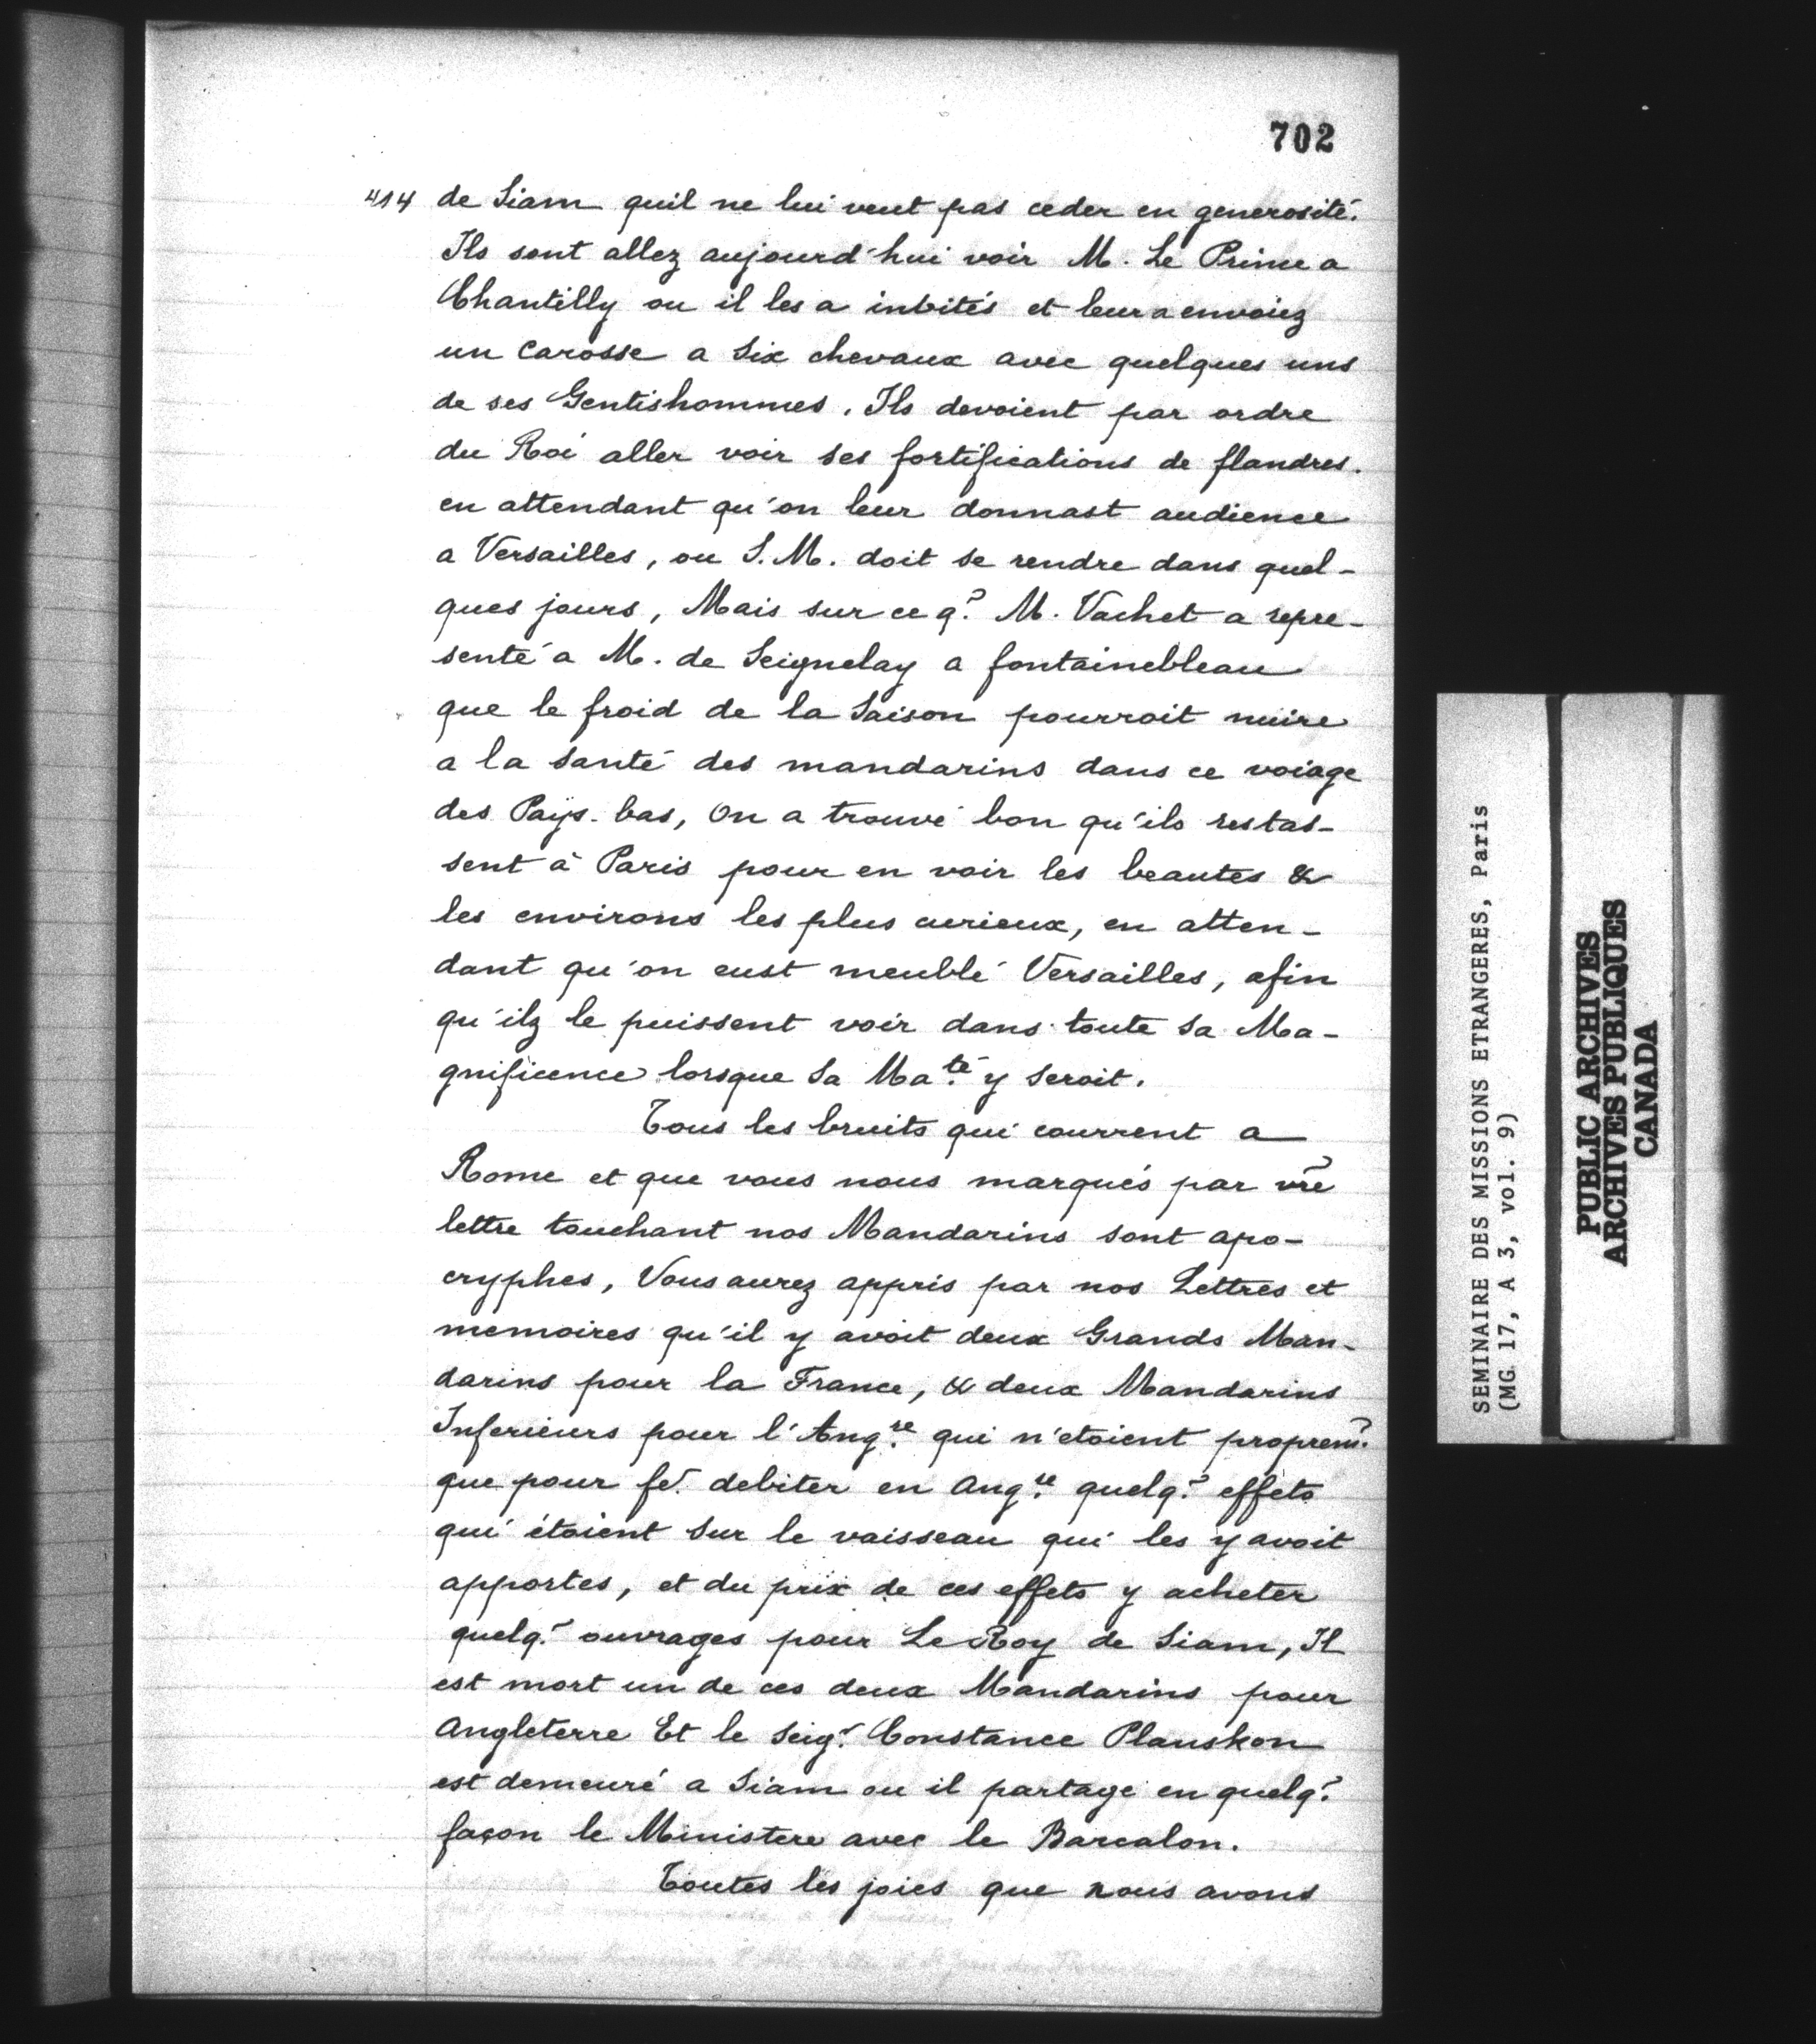 702
414 de Siam quil ne lui veut pas ceder en generosité.
Ils sont allez aujourd'hui voir M. Le Prince a
Chantilly ou il les a invités et leur a envoiez
un Carosse a Six chevaux avec quelques uns
de ses Gentishommes. Ils devoient par ordre
du Roi aller voir ses fortifications de flandres.
en attendant qu'on leur donnast audience
a Versailles, ou S. M. doit se rendre dans quel-
ques jours, Mais sur ce q? M. Vachet a repre-
senté a M. de Seignelay a fontainebleau
que le froid de la Saison pourroit nuire
a la Santé des mandarins dans ce voiage
des Païs-bas, On a trouvé bon qu'ils restas-
sent à Paris pour en voir les beautes &
les environs les plus curieux, en atten-
dant qu'on eust meublé Versailles, afin
qu'ilz le puissent voir dans toute Sa Ma-
gnificence lorsque Sa Ma.té y Seroit.
Tous les bruits qui courrent a
Rome et que vous nous marqués par vre
lettre touchant nos Mandarins sont apo-
cryphes, Vous aurez appris par nos Lettres et
memoires qu'il y avoit deux Grands Man-
darins pour la France, & deux Mandarins
Inferieurs pour l'Ang.re qui n'etoient proprem.
que pour fe. debiter en Ang.re quelq? effets
qui étoient Sur le vaisseau qui les y avoit
apportes, et du prix de ces effets y acheter
quelq? ouvrages pour Le Roy de Siam, Il
est mort un de ces deux Mandarins pour
Angleterre Et le Seig.r Constance Plauskon
est demeuré a Siam ou il partage en quelq?
façon le Ministere avec le Barcalon.
Toutes les joies que nous avons
SEMINAIRE DES MISSIONS ETRANGERES, Paris
(MG 17, A 3, vol. 9)
PUBLIC ARCHIVES
ARCHIVES PUBLIQUES
CANADA